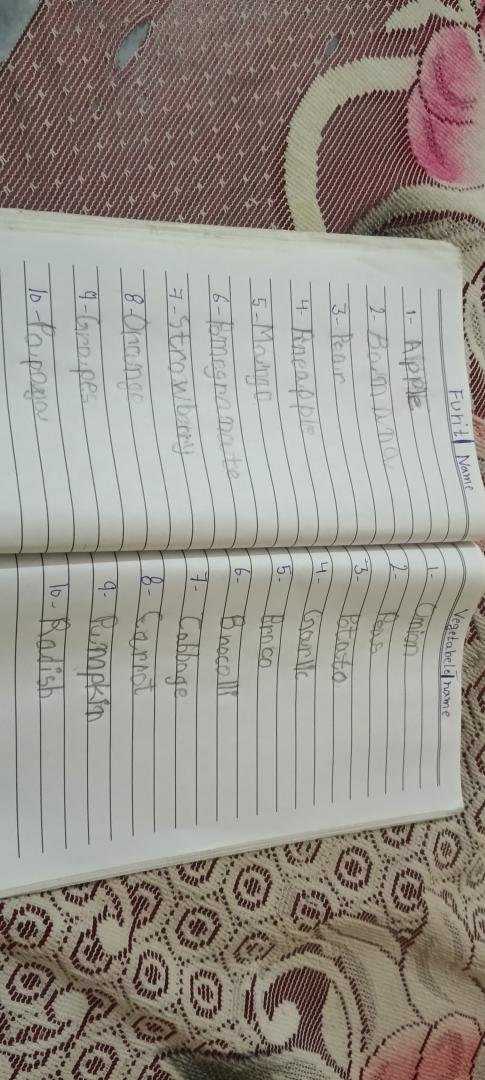 Furit Name
1- Apple
2- Banana
3- Pear
4- Pineapple
5- Mango
6- Pomegranate
7- Strawberry
8- Orange
9- Grapes
10- Papaya
Vegetabele name
1- Onion
2- Peas
3- Potato
4- Garnlc
5-
6- Brocolli
7- Cabbage
8- Carrot
9- Pumpkin
10- Radish